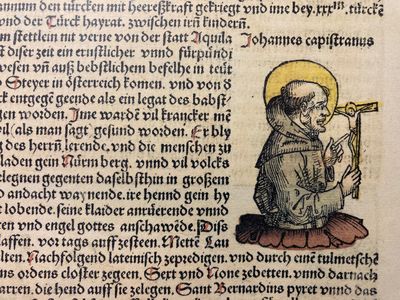 annum den türcken mit heereßkraft gekriegt vnd ime bey .xxxiij. türckē
vnd der Türck hayrat. zwischen irn kindern̄.
m stettlein nit verne von der statt Aquila
t diser zeit ein ernstlicher vnnd fürpündi
wesen vn̄ auß bebstlichem befelhe in teüt
Steyer in österreich komen. vnd von d
ck entgegē geende als ein legat des babst-
gen worden. Jme wardē vil krancker me
vil (als man sagt) gesund worden. Er bly
g des herrn̄. lerende, vnd die menschen zu
laden gein Nürmberg. vnnd vil volcks
elegnen gegenten daselbsthin in großem
nd andacht waynende. ire hennd gein hy
t lobende. seine klaider anrüerende vnnd
ren vnd engel gottes anschawēde. Diß
laffen. vor tags auff zesteen. Mettē Lau
lten. Nachfolgend lateinisch zepredigen. vnd durch einē tulmetschē
ns ordens closter zegeen. Sext vnd None zebetten. vnnd darnach
arren. die hend auff sie zelegen. Sant Bernardins pyret vnnd das
Johannes capistranus